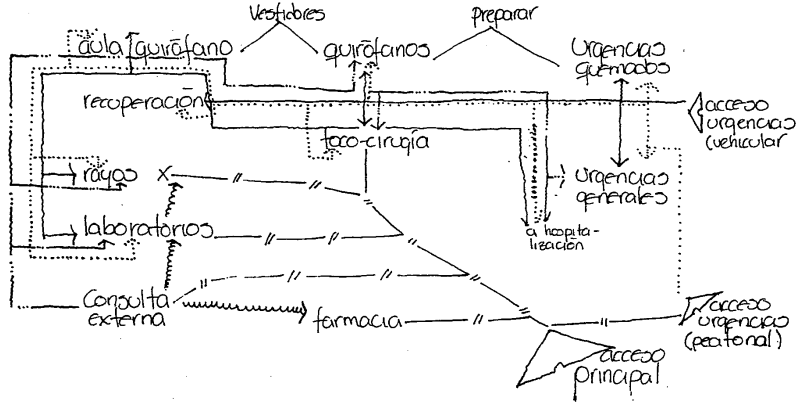 Vestidores
preparar
aula quirófano
quirófanos
urgencias
quemados
recuperación
acceso
urgencias
(vehicular
toco-cirugía
rayos X
urgencias
generales
laboratorios
a hospita-
lización
consulta
externa
farmacia
acceso
urgencias
(peatonal)
acceso
principal